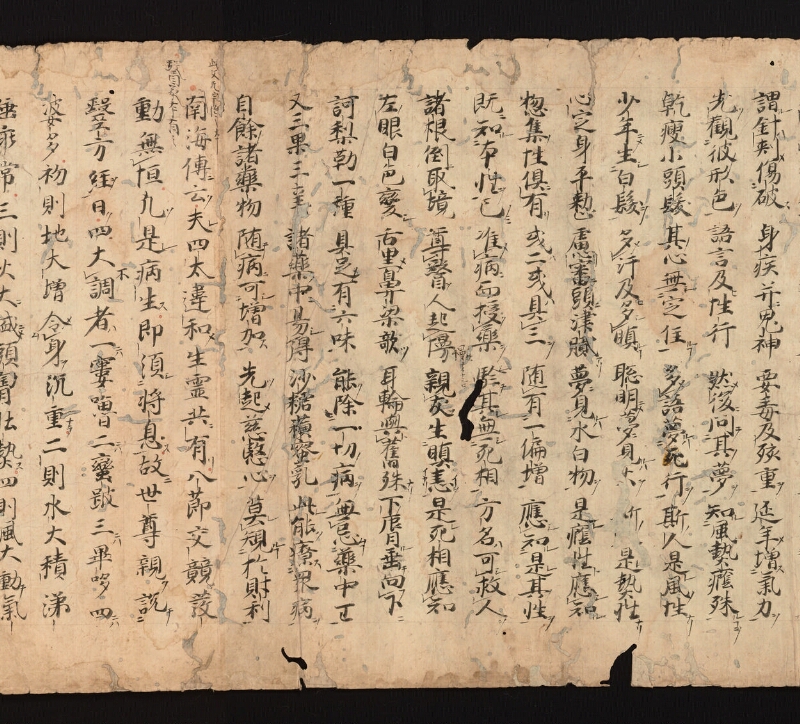 謂針刺傷破 身疾并鬼神 惡毒及孩童 延年增氣力
先觀彼形色 語言及性行 然後問其夢 知風熱癊殊
乾瘦少頭髮 其心無定住 多語夢飛行 斯人是風性
少年生白髮 多汗及多瞋 聰明夢見火 是熱性
心定身平整 慮審頭津膩 夢見水白物 是癊性應知
惣集性俱有 或二或具三 随有一偏增 應知是其性
既知本性已 准病而授藥 驗其無死相 方名可救人
諸根倒取境 尊醫人起慢 親友生瞋恚 是死相應知
左眼白色變 舌黒鼻梁欹 耳輪與舊殊 下脣垂向下
訶梨勒一種 具足有六味 能除一切病 無忌藥中王
又三果三辛 諸藥中易得 沙糖橫蜜乳 此能療眾病
自餘諸藥物 随病可增加 先起慈愍心 莫規於財利
南海傳云夫四大違和生靈共有八節交競發
動無恒凡是病生即須將息故世尊親說
醫方經曰四大不調者一窶嚕二燮跛三畢哆四
婆哆初則地大增令身沉重二則水大積涕
唾乖常三則火大盛頭胸壯熱四則風大動氣